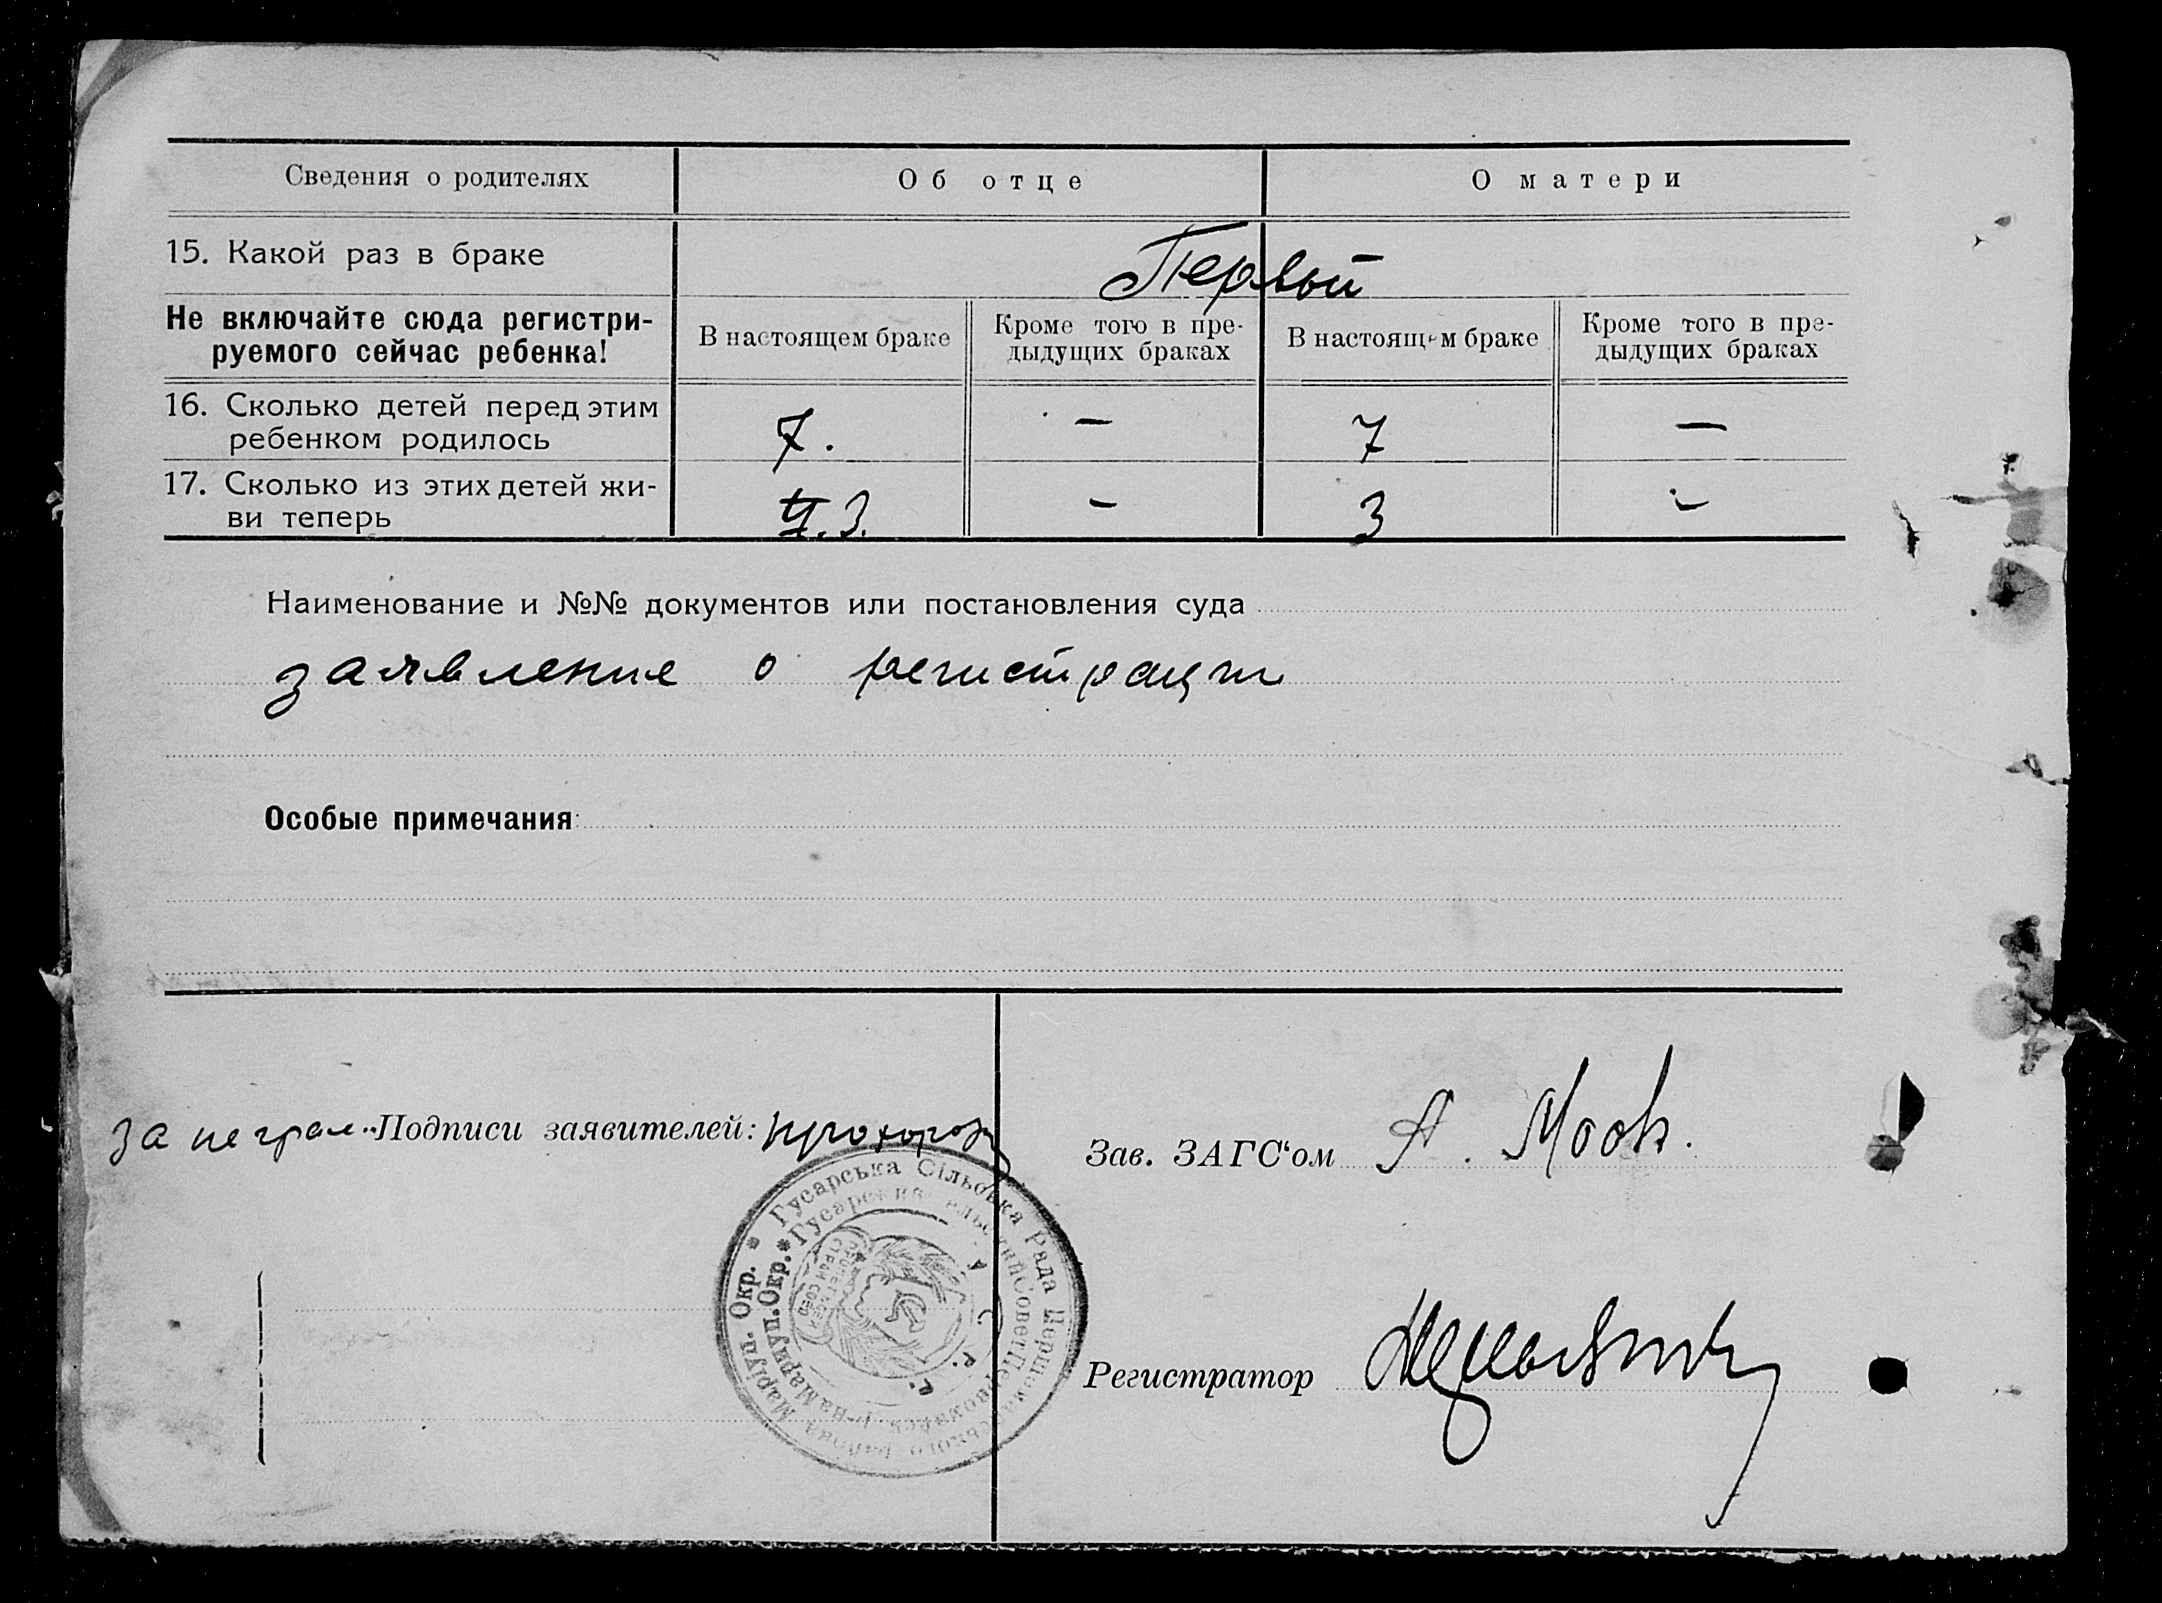 Сведения о родителях
Об отце
О матери
15. Какой раз в браке
Первый
Не включайте сюда регистри-
руемого сейчас ребенка!
В настоящем браке
Кроме того в пре-
дыдущих браках
В настоящем браке
Кроме того в пре-
дыдущих браках
16. Сколько детей перед этим
ребенком родилось
7.
—
7
—
17. Сколько из этих детей жи-
ви теперь
3.
-
3
-
Наименование и №№ документов или постановления суда
заявление о регистрации
Особые примечания:
за неграм. Подписи заявителей: Прохоров
Зав. ЗАГС‘ом А. Моок.
Регистратор
* Гусарська Сільська Рада Першомайського району Маріуп. Окр.
* Гусарский Сельский Совет Первомайск. р-на Мариуп. Окр.